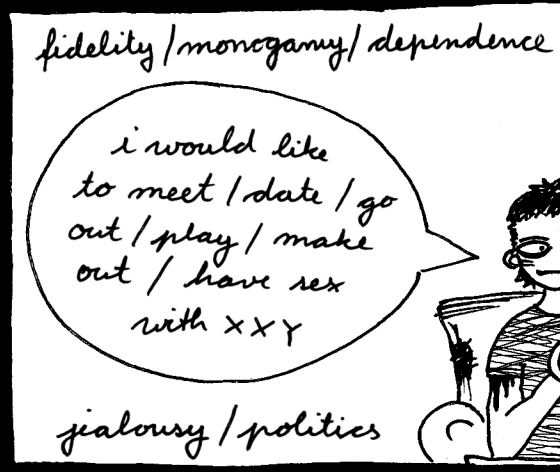 fidelity / monogamy / dependence
i would like
to meet / date / go
out / play / make
out / have sex
with XXY
jealousy / politics